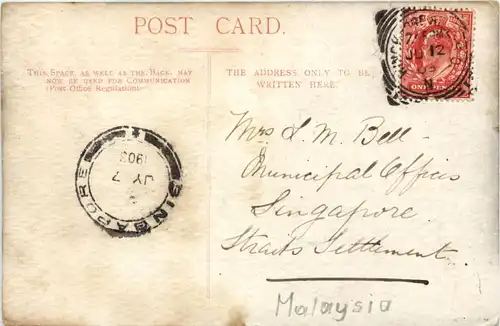 POST CARD.
THIS SPACE, AS WELL AS THE BACK, MAY
NOW BE USED FOR COMMUNICATION
(Post Office Regulations)
THE ADDRESS ONLY TO BE
WRITTEN HERE.
JU 12
ONE PENNY
SINGAPORE
JY 7
Mrs L. M. Bell -
Municipal Offices
Singapore
Straits Settlement
Malaysia